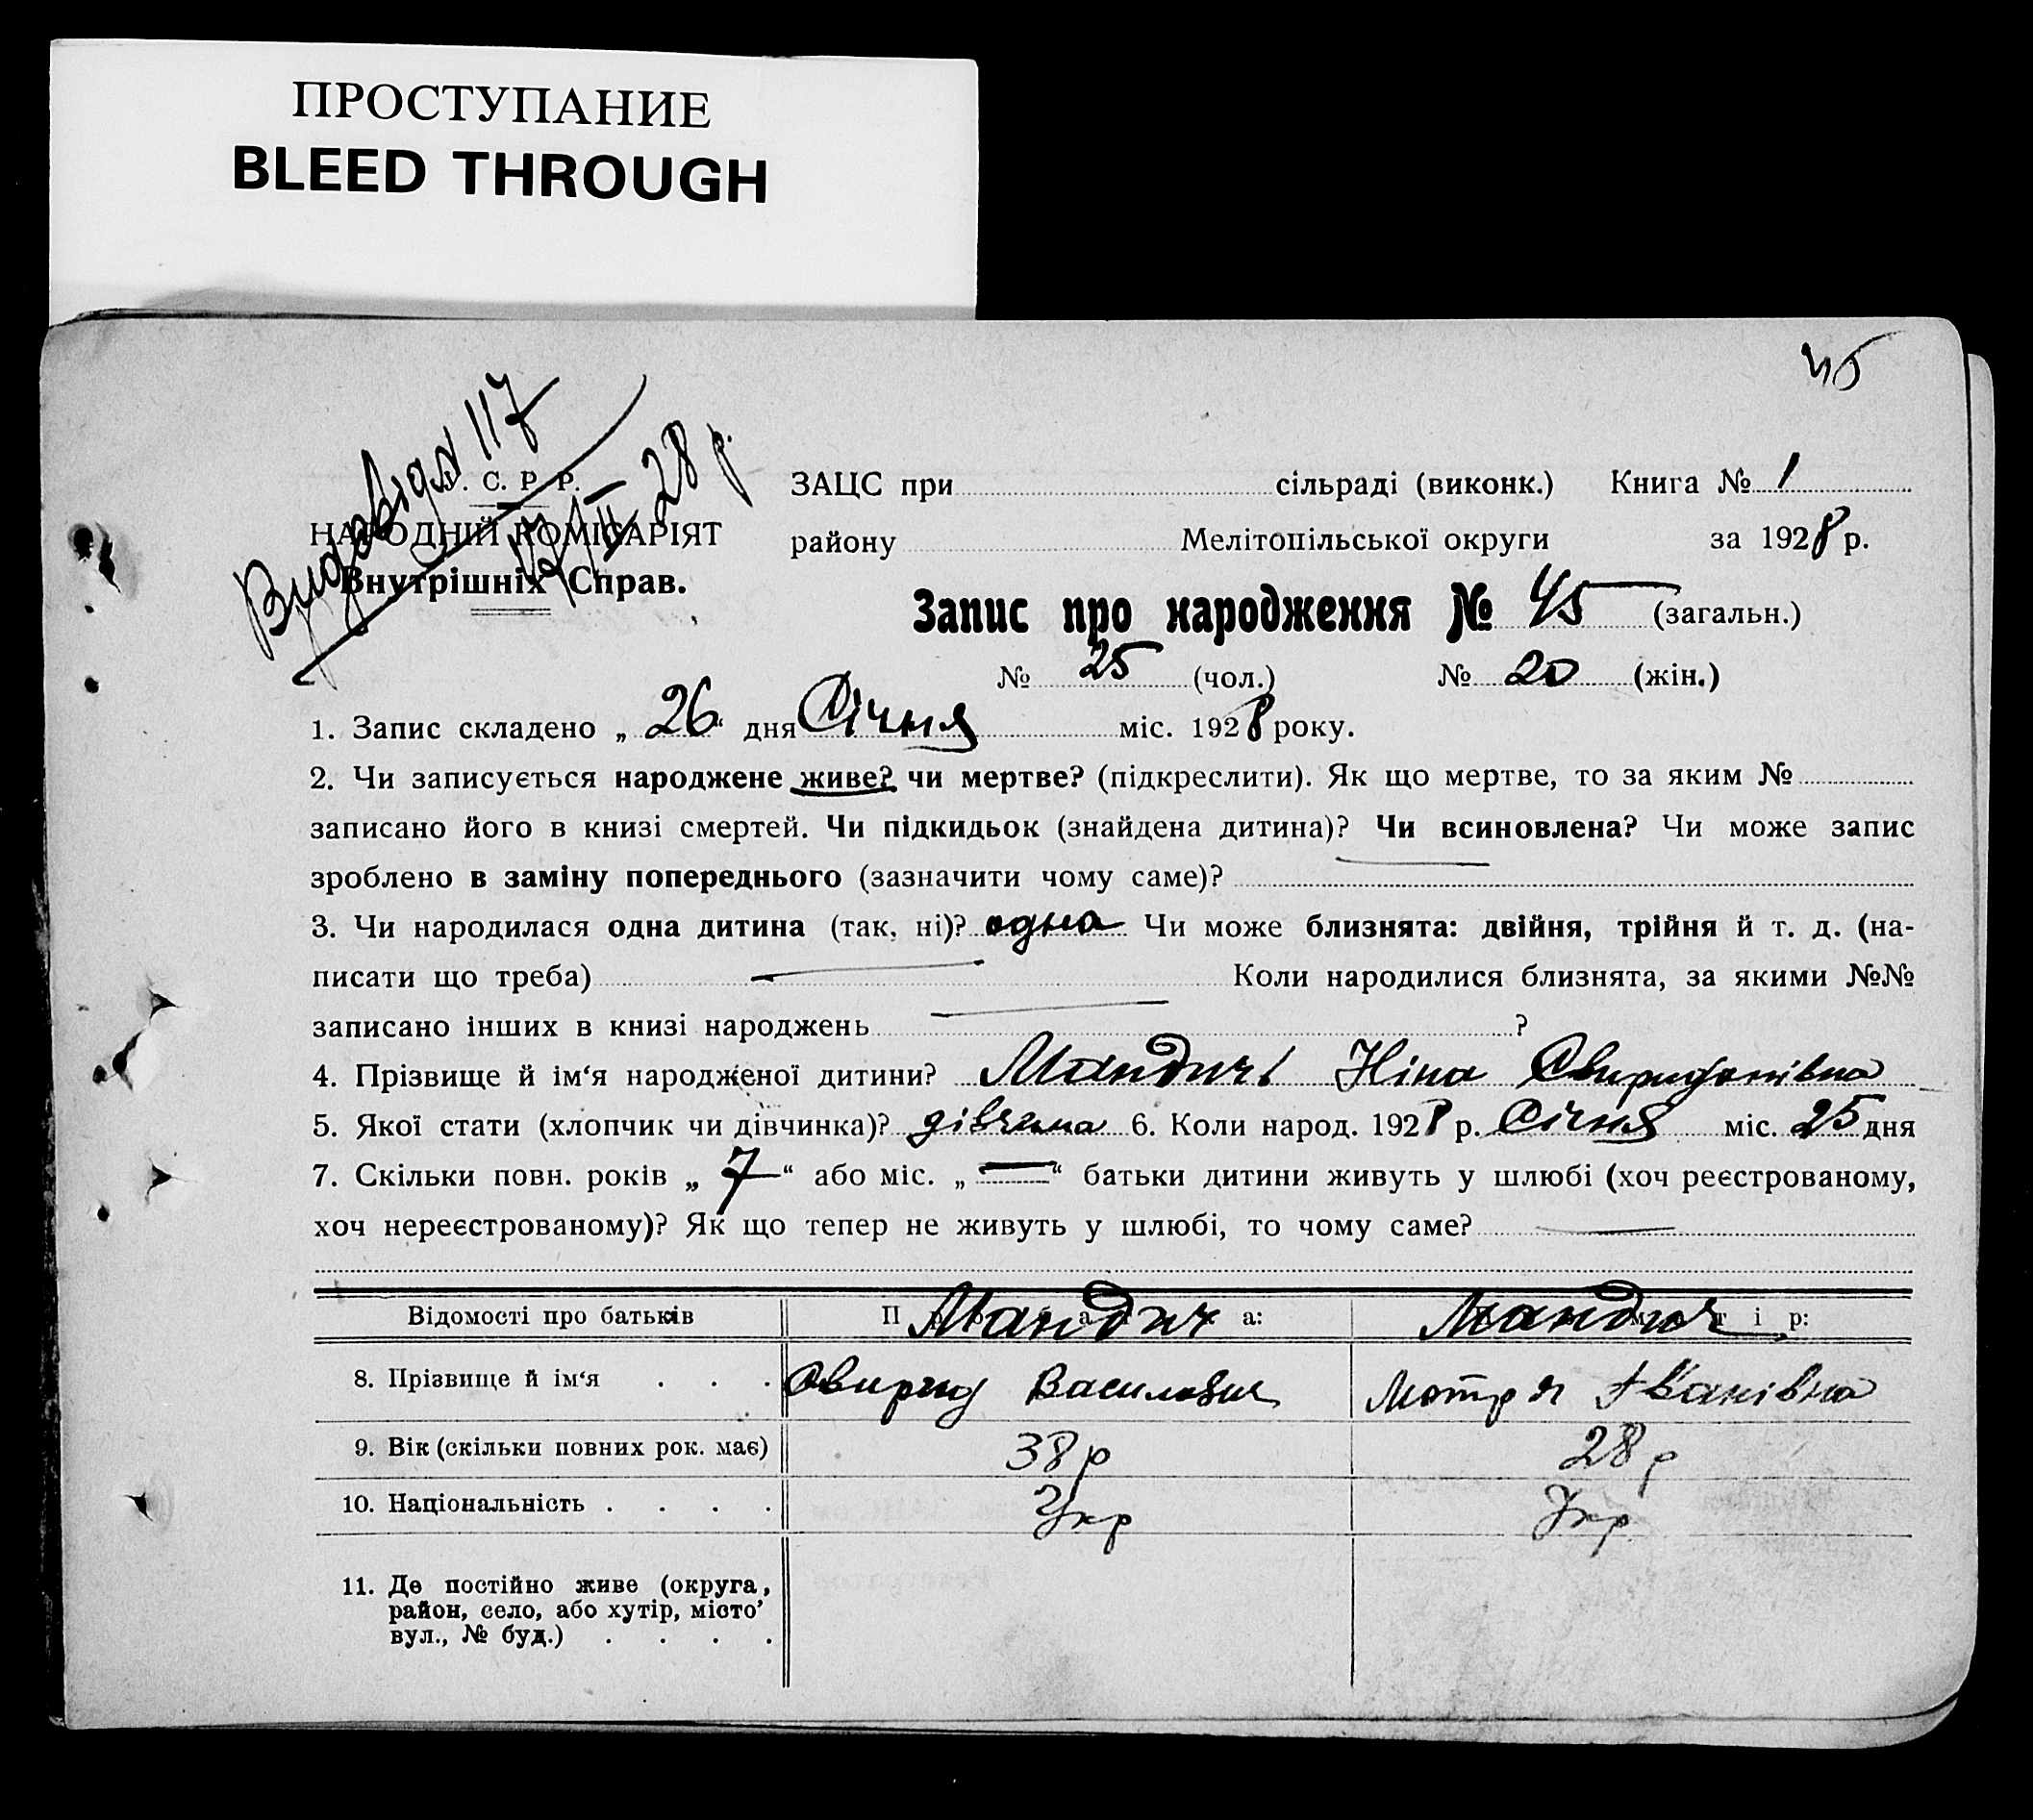 ПРОСТУПАНИЕ
BLEED THROUGH
45
117
28 р.
С. Р. Р.
НАРОДНІЙ КОМІСАРІЯТ
Внутрішніх Справ.
ЗАЦС при сільраді (виконк.) Книга № 1
району Мелітопільської округи за 1928 р.
Запис про народження № 45 (загальн.)
№ 25 (чол.) № 20 (жін.)
1. Запис складено „ 26 “ дня Січня міс. 1928 року.
2. Чи записується народжене живе? чи мертве? (підкреслити). Як що мертве, то за яким №
записано його в книзі смертей. Чи підкидьок (знайдена дитина)? Чи всиновлена? Чи може запис
зроблено в заміну попереднього (зазначити чому саме)?
3. Чи народилася одна дитина (так, ні)? одна Чи може близнята: двійня, трійня й т. д. (на-
писати що треба) — Коли народилися близнята, за якими №№
записано інших в книзі народжень — ?
4. Прізвище й ім‘я народженої дитини? Мандич Ніна Свиридонівна
5. Якої стати (хлопчик чи дівчинка)? дівчина 6. Коли народ. 1928 р. Січня міс. 25 дня
7. Скільки повн. років „ 7 “ або міс. „ — “ батьки дитини живуть у шлюбі (хоч реєстрованому,
хоч нереєстрованому)? Як що тепер не живуть у шлюбі, то чому саме? —
Відомості про батьків Мандич Мандич
8. Прізвище й ім‘я . . . Свирид Василович Мотря Іванівна
9. Вік (скільки повних рок. має) 38 р 28 р
10. Національність . . . . Укр Укр
11. Де постійно живе (округа,
район, село, або хутір, місто’
вул., № буд.) . . . .